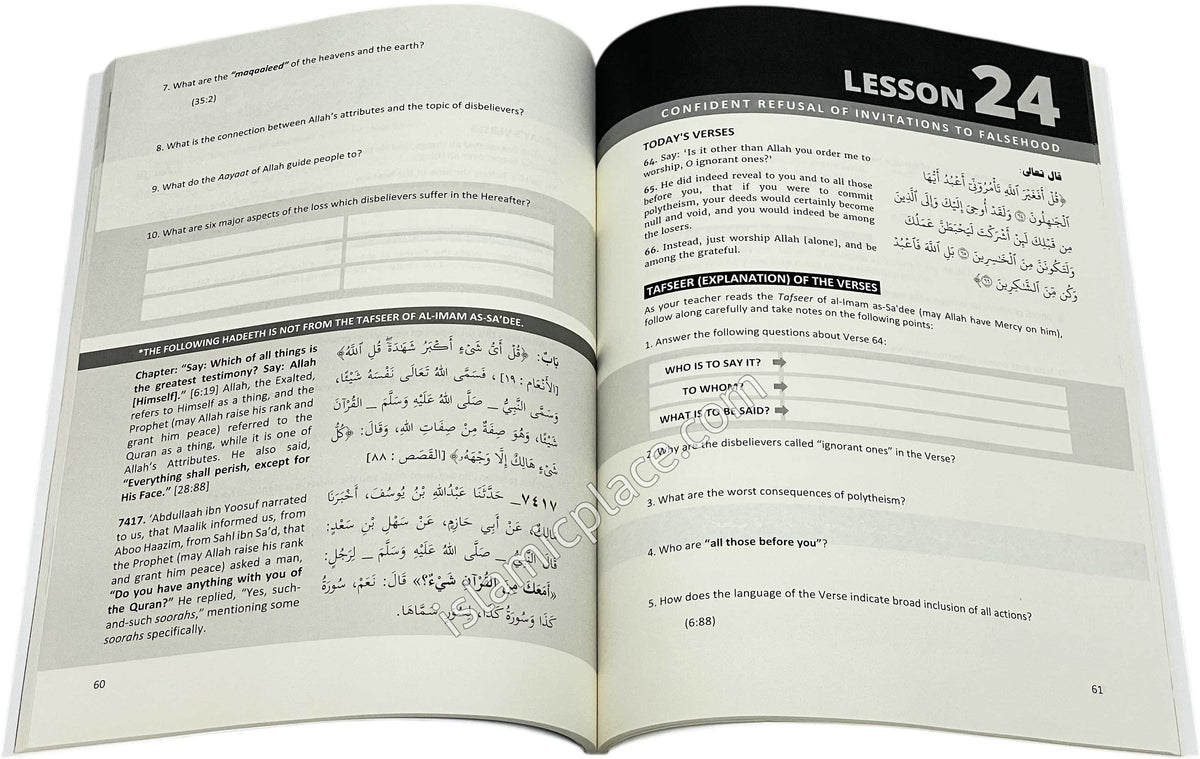 7. What are the “maqaaleed” of the heavens and the earth?
(35:2)
8. What is the connection between Allah’s attributes and the topic of disbelievers?
9. What do the Aayaat of Allah guide people to?
10. What are six major aspects of the loss which disbelievers suffer in the Hereafter?
*THE FOLLOWING HADEETH IS NOT FROM THE TAFSEER OF AL-IMAM AS-SA’DEE.
Chapter: “Say: Which of all things is
the greatest testimony? Say: Allah
[Himself].” [6:19] Allah, the Exalted,
refers to Himself as a thing, and the
Prophet (may Allah raise his rank and
grant him peace) referred to the
Quran as a thing, while it is one of
Allah’s Attributes. He also said,
“Everything shall perish, except for
His Face.” [28:88]
7417. ‘Abdullaah ibn Yoosuf narrated
to us, that Maalik informed us, from
Aboo Haazim, from Sahl ibn Sa’d, that
the Prophet (may Allah raise his rank
and grant him peace) asked a man,
“Do you have anything with you of
the Quran?” He replied, “Yes, such-
and-such soorahs,” mentioning some
soorahs specifically.
بَابٌ: ﴿قُلْ أَىُّ شَىْءٍ أَكْبَرُ شَهَٰدَةً قُلِ ٱللَّهُ﴾
[الأَنْعَام : ١٩] ، فَسَمَّى اللهُ تَعَالَى نَفْسَهُ شَيْئًا،
وَسَمَّى النَّبِيُّ _ صَلَّى اللهُ عَلَيْهِ وَسَلَّمَ _ القُرْآنَ
شَيْئًا، وَهُوَ صِفَةٌ مِنْ صِفَاتِ اللهِ، وَقَالَ: ﴿كُلُّ
شَىْءٍ هَالِكٌ إِلَّا وَجْهَهُۥ﴾ [القَصَص : ٨٨]
٧٤١٧_ حَدَّثَنَا عَبْدُاللهِ بْنُ يُوسُفَ، أَخْبَرَنَا
مَالِكٌ، عَنْ أَبِي حَازِمٍ، عَنْ سَهْلِ بْنِ سَعْدٍ:
قَالَ النَّبِيُّ _ صَلَّى اللهُ عَلَيْهِ وَسَلَّمَ _ لِرَجُلٍ:
«أَمَعَكَ مِنَ القُرْآنِ شَيْءٌ؟» قَالَ: نَعَمْ، سُورَةُ
كَذَا وَسُورَةُ كَذَا، لِسُوَرٍ سَمَّاهَا.
60
LESSON 24
CONFIDENT REFUSAL OF INVITATIONS TO FALSEHOOD
TODAY'S VERSES
64. Say: ‘Is it other than Allah you order me to
worship, O ignorant ones?’
65. He did indeed reveal to you and to all those
before you, that if you were to commit
polytheism, your deeds would certainly become
null and void, and you would indeed be among
the losers.
66. Instead, just worship Allah [alone], and be
among the grateful.
قال تعالى:
﴿قُلْ أَفَغَيْرَ ٱللَّهِ تَأْمُرُوٓنِّىٓ أَعْبُدُ أَيُّهَا
ٱلْجَٰهِلُونَ ٦٤ وَلَقَدْ أُوحِىَ إِلَيْكَ وَإِلَى ٱلَّذِينَ
مِن قَبْلِكَ لَئِنْ أَشْرَكْتَ لَيَحْبَطَنَّ عَمَلُكَ
وَلَتَكُونَنَّ مِنَ ٱلْخَٰسِرِينَ ٦٥ بَلِ ٱللَّهَ فَٱعْبُدْ
وَكُن مِّنَ ٱلشَّٰكِرِينَ ٦٦﴾
TAFSEER (EXPLANATION) OF THE VERSES
As your teacher reads the Tafseer of al-Imam as-Sa’dee (may Allah have Mercy on him),
follow along carefully and take notes on the following points:
1. Answer the following questions about Verse 64:
WHO IS TO SAY IT?
TO WHOM?
WHAT IS TO BE SAID?
2. Why are the disbelievers called “ignorant ones” in the Verse?
3. What are the worst consequences of polytheism?
4. Who are “all those before you”?
5. How does the language of the Verse indicate broad inclusion of all actions?
(6:88)
61
islamicplace.com